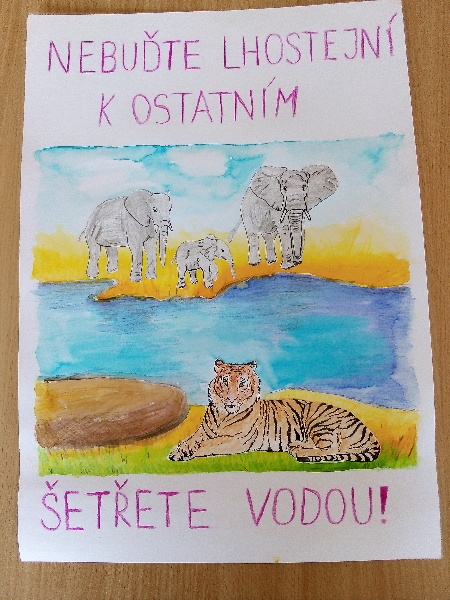 NEBUĎTE LHOSTEJNÍ
K OSTATNÍM
ŠETŘETE VODOU!